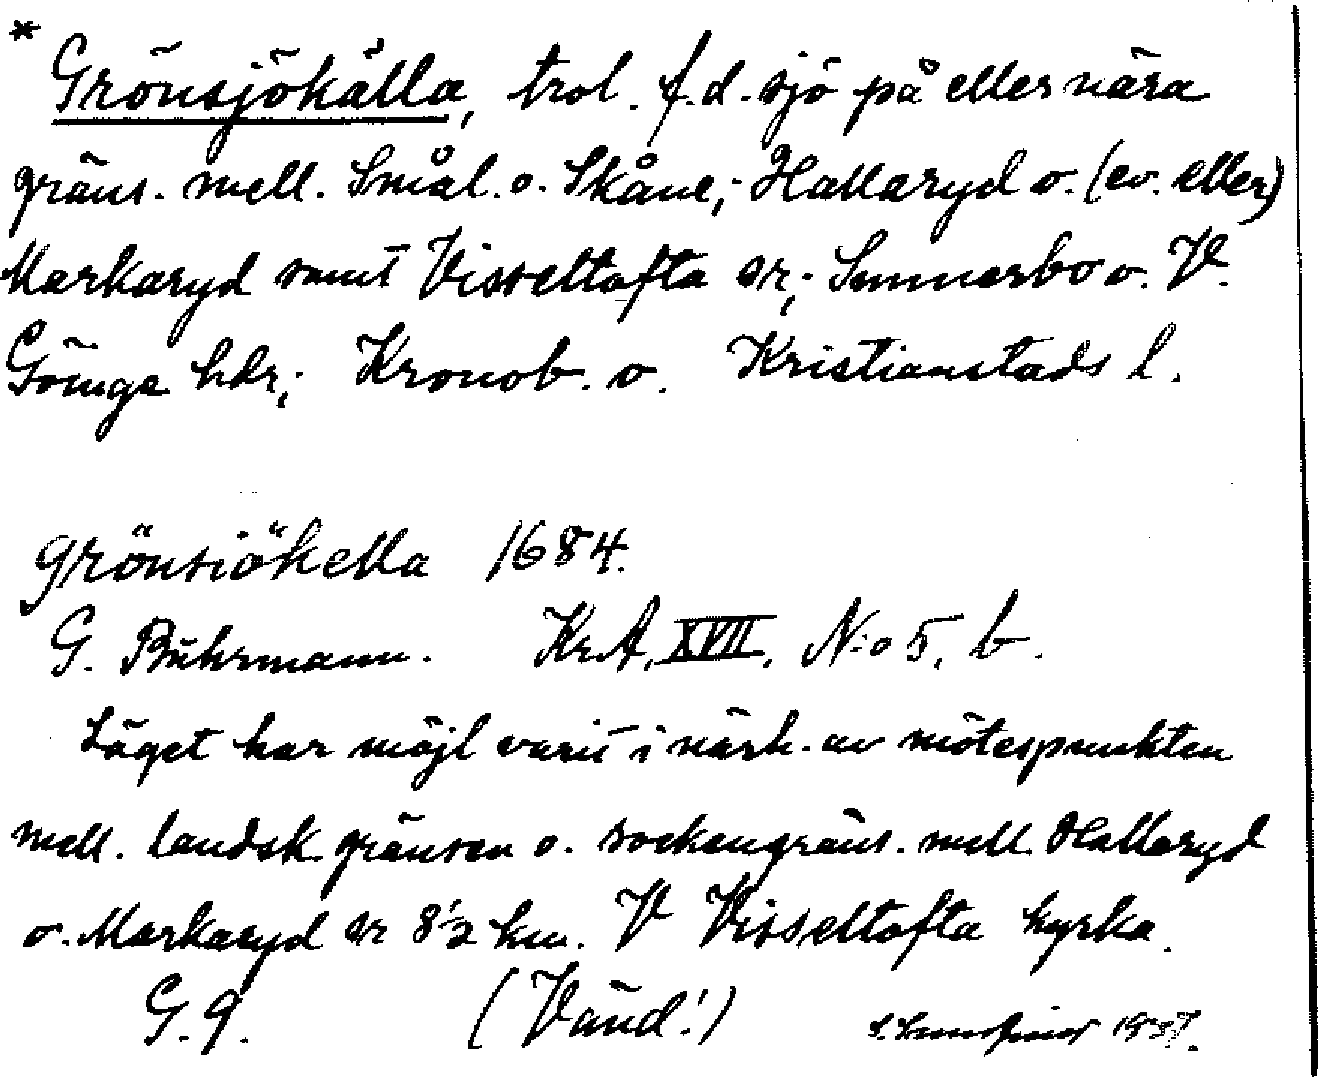 * Grönsjökälla, trol. f.d. sjö på eller nära
gräns. mell. Smål. o. Skåne; Hallaryd o. (ev. eller)
Markaryd samt Visseltofta sr; Sunnerbo o. V.
Göinge hdr; Kronob. o. Kristianstads l.
grönsiökella 1684.
G. Buhrmann. KrA, XVII, N:o 5, b.
Läget har möjl varit i närh. av mötespunkten
mell. landsk. gränsen o. sockengräns. mell. Hallaryd
o. Markaryd sr 8 1/2 km. V Visseltofta kyrka.
G. 9. (Vänd!) 1937.